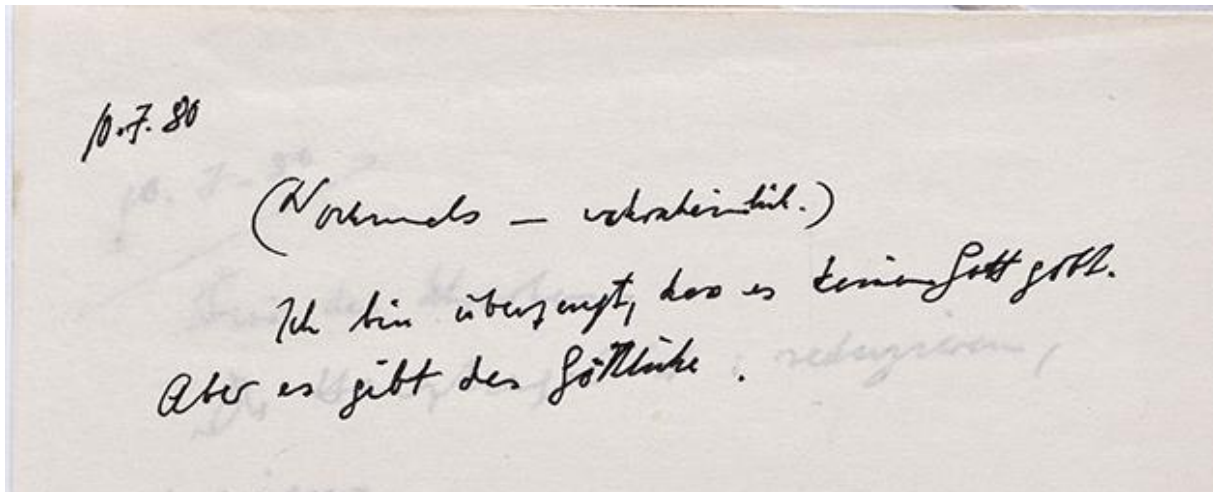 10.7.80
(Nochmals — wahrscheinlich.)
Ich bin überzeugt, dass es keinen Gott gibt.
Aber es gibt das Göttliche.